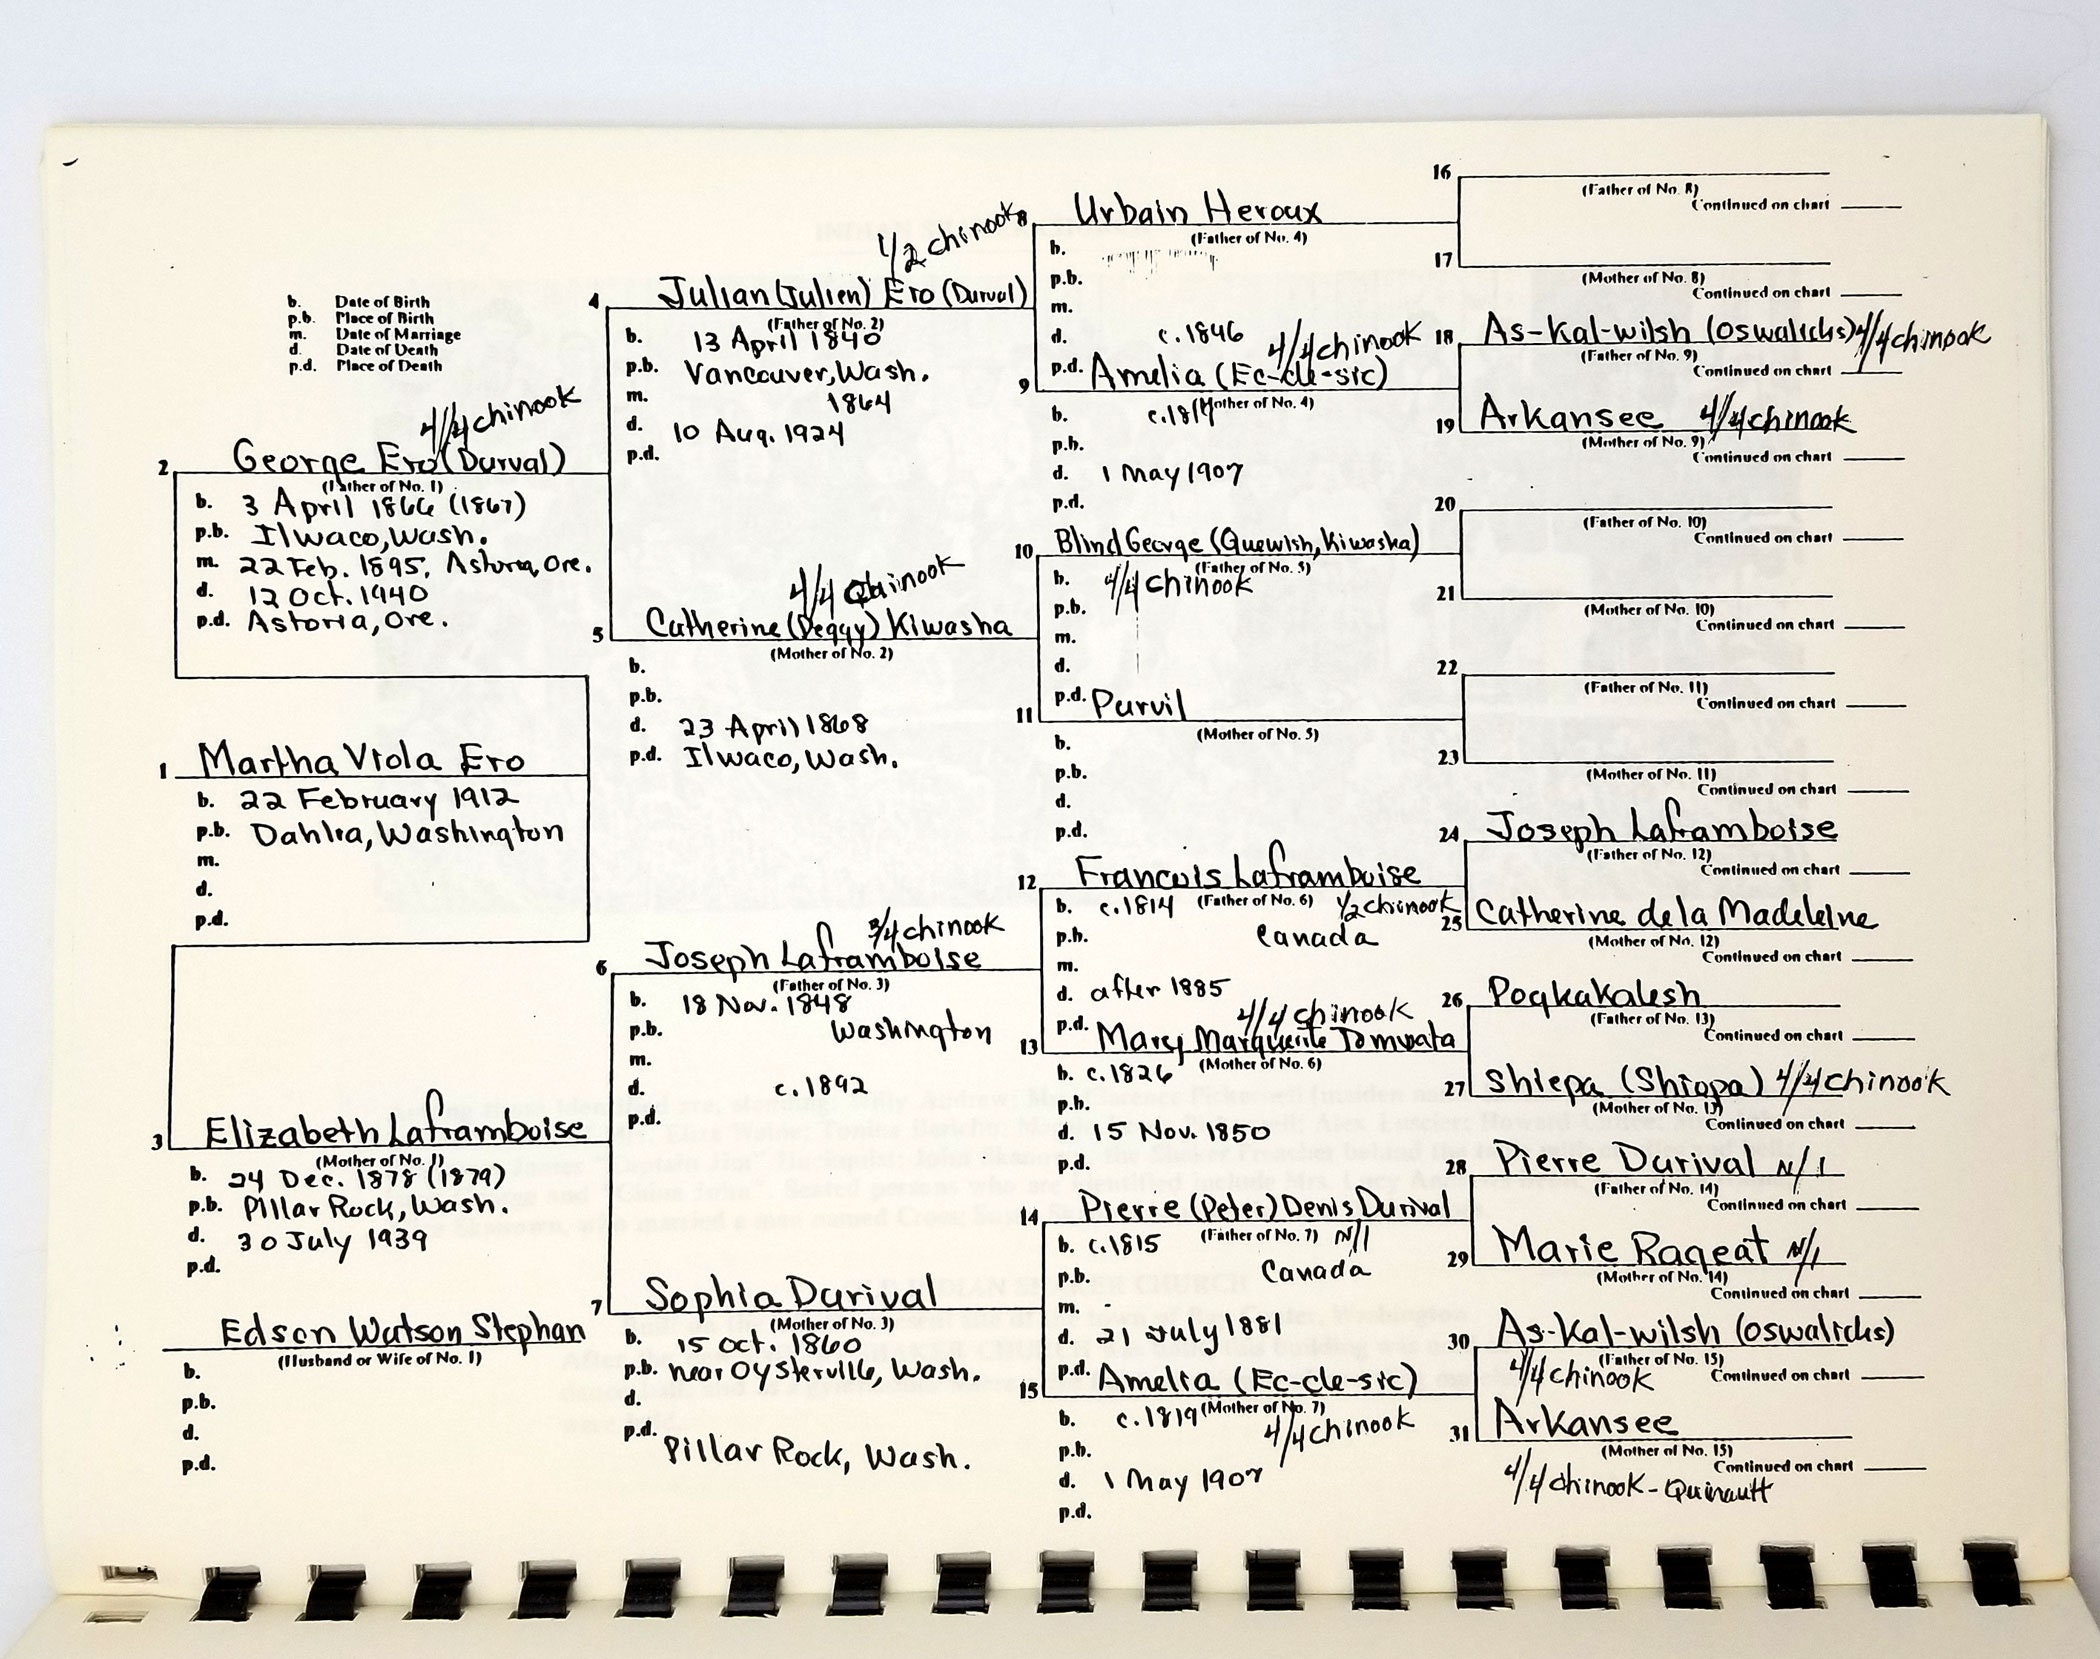 b. Date of Birth
p.b. Place of Birth
m. Date of Marriage
d. Date of Death
p.d. Place of Death
4/4 chinook
2 George Ero (Durval)
(Father of No. 1)
b. 3 April 1866 (1867)
p.b. Ilwaco, Wash.
m. 22 Feb. 1895, Astoria, Ore.
d. 12 Oct. 1940
p.d. Astoria, Ore.
1 Martha Viola Ero
b. 22 February 1912
p.b. Dahlia, Washington
m.
d.
p.d.
3 Elizabeth Laframboise
(Mother of No. 1)
b. 24 Dec. 1878 (1879)
p.b. Pillar Rock, Wash.
d. 30 July 1939
p.d.
Edson Watson Stephan
(Husband or Wife of No. 1)
b.
p.b.
d.
p.d.
1/2 chinook
4 Julian (Julien) Ero (Durval)
(Father of No. 2)
b. 13 April 1840
p.b. Vancouver, Wash.
m. 1864
d. 10 Aug. 1924
p.d.
4/4 Chinook
5 Catherine (Peggy) Kiwasha
(Mother of No. 2)
b.
p.b.
d. 23 April 1868
p.d. Ilwaco, Wash.
3/4 chinook
6 Joseph Laframboise
(Father of No. 3)
b. 18 Nov. 1848
p.b. Washington
m.
d. c.1892
p.d.
7 Sophia Durival
(Mother of No. 3)
b. 15 Oct. 1860
p.b. near Oysterville, Wash.
d.
p.d. Pillar Rock, Wash.
8 Urbain Heroux
(Father of No. 4)
b.
p.b.
m.
d. c.1846
p.d.
4/4 chinook
9 Amelia (Ec-cle-sic)
(Mother of No. 4)
b.
p.b.
d. 1 May 1907
p.d.
10 Blind George (Quewish, Kiwasha)
(Father of No. 5)
b. 4/4 chinook
p.b.
m.
d.
p.d.
11 Purvil
(Mother of No. 5)
b.
p.b.
d.
p.d.
12 Francois Laframboise
(Father of No. 6)
b. c.1814 1/2 chinook
p.b. Canada
m.
d. after 1885
p.d. 4/4 chinook
13 Mary Marguerite
(Mother of No. 6)
b. c.1826
p.b.
d. 15 Nov. 1850
p.d.
14 Pierre (Peter) Denis Durival
(Father of No. 7) N/I
b. c.1815
p.b. Canada
m.
d. 21 July 1881
p.d.
15 Amelia (Ec-cle-sic)
(Mother of No. 7)
b. c.1819 4/4 chinook
p.b.
d. 1 May 1907
p.d.
16
(Father of No. 8)
Continued on chart
17
(Mother of No. 8)
Continued on chart
18 As-Kal-wilsh (Oswalichs) 4/4 chinook
(Father of No. 9)
Continued on chart
19 Arkansee 4/4 chinook
(Mother of No. 9)
Continued on chart
20
(Father of No. 10)
Continued on chart
21
(Mother of No. 10)
Continued on chart
22
(Father of No. 11)
Continued on chart
23
(Mother of No. 11)
Continued on chart
24 Joseph Laframboise
(Father of No. 12)
Continued on chart
25 Catherine de la Madeleine
(Mother of No. 12)
Continued on chart
26 Poqkakalesh
(Father of No. 13)
Continued on chart
27 Shiepa (Shiopa) 4/4 chinook
(Mother of No. 13)
Continued on chart
28 Pierre Durival N/I
(Father of No. 14)
Continued on chart
29 Marie Rageat N/I
(Mother of No. 14)
Continued on chart
30 As-Kal-wilsh (Oswalichs)
(Father of No. 15)
4/4 chinook Continued on chart
31 Arkansee
(Mother of No. 15)
Continued on chart
4/4 chinook - Quinault